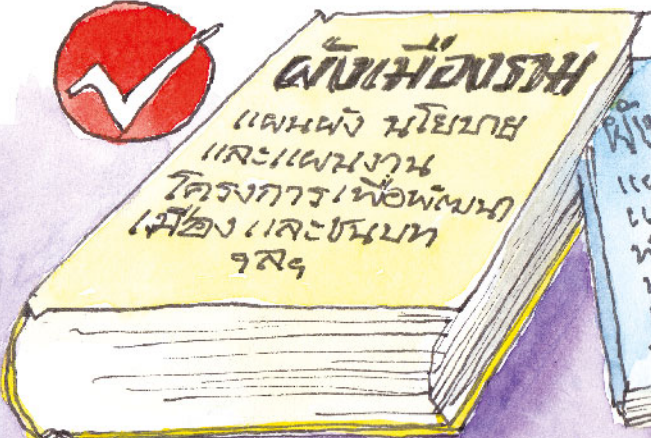 ผังเมืองรวม
แผนผัง นโยบาย
และแผนงาน
โครงการเพื่อพัฒนา
เมือง และชนบท
ฯลฯ